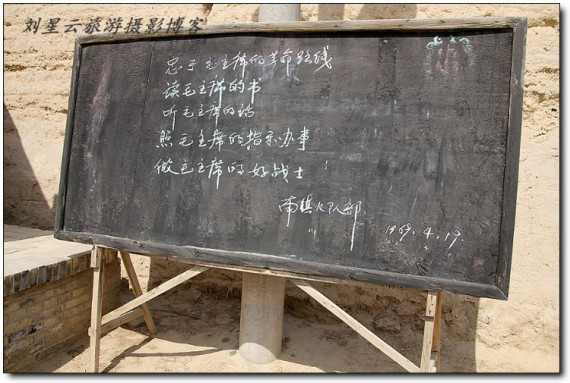 刘星云旅游摄影博客
忠于毛主席的革命路线
读毛主席的书
听毛主席的话
照毛主席的指示办事
做毛主席的好战士！
南镇大队部
1969.4.19